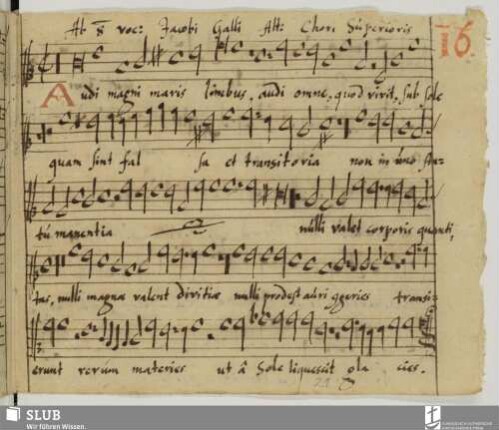 Ab 8 voc: Jacobi Galli Alt: Chori Superioris
16.
Audi magni maris limbus, audi omne, quod vivit, sub sole
quam sint fal sa et transitoria non in uno sta-
tu manentia nulli valet corporis quanti,
tas, nulli magnae valent divitiae nulli prodest auri ageries transi-
erunt rerum materies ut a Sole liquescit gla cies.
SLUB
Wir führen Wissen.